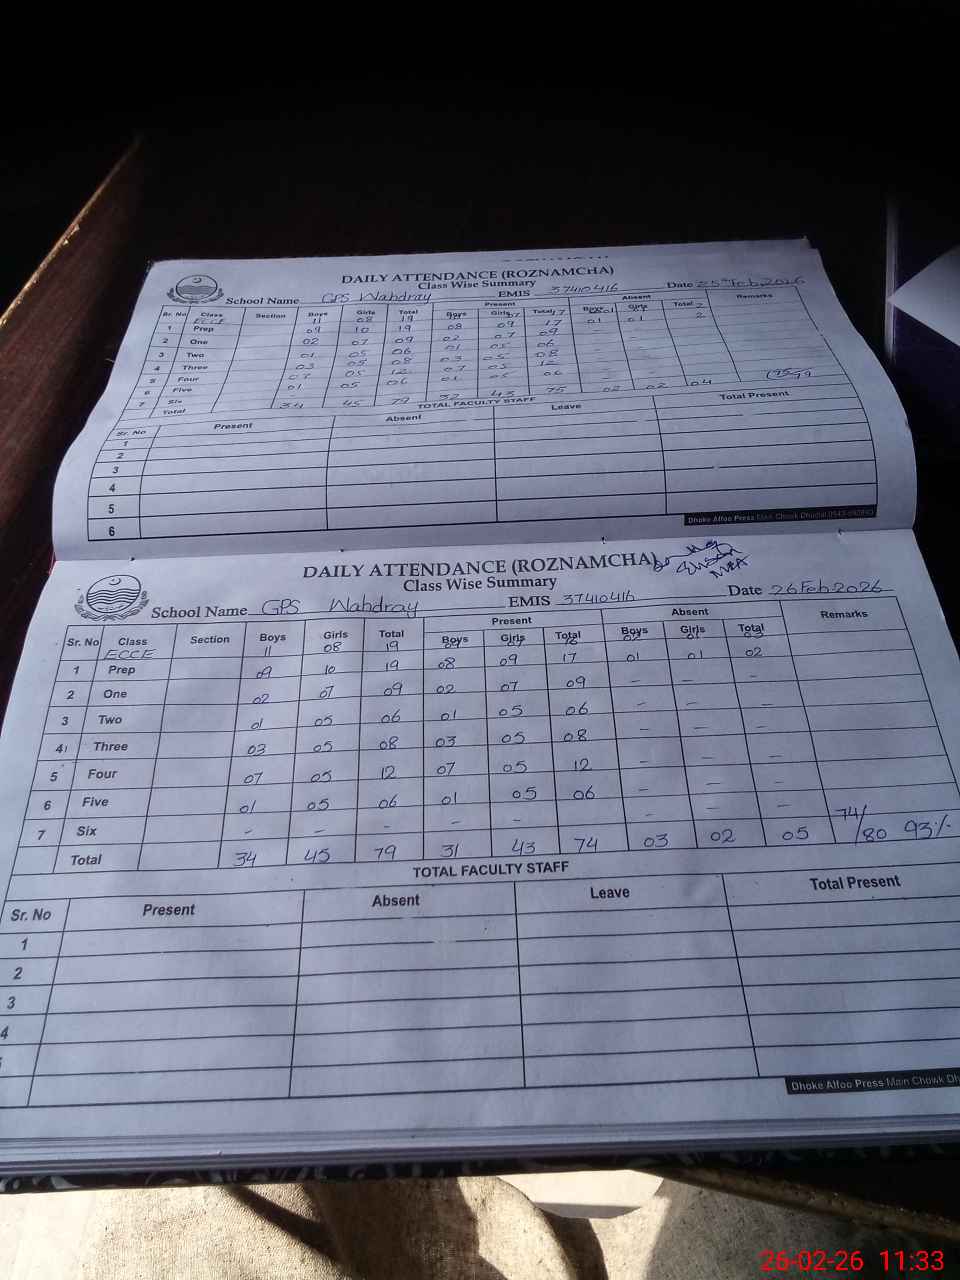 DAILY ATTENDANCE (ROZNAMCHA)
Class Wise Summary
School Name GPS Wahdray EMIS 37410416 Date 25th Feb 2026
Sr. No Class Section Boys Girls Total Present Boys Girls Total Absent Boys Girls Total Remarks
ECCE 11 08 19 17 2
1 Prep 09 10 19 08 09 17 01 01
2 One 02 07 09 02 07 09
3 Two 01 05 06 01 05 06
4 Three 03 05 08 03 05 08
5 Four 07 05 12 07 05 12
6 Five 01 05 06 01 05 06
7 Six
Total 34 45 79 32 43 75 02 02 04 75/79
TOTAL FACULTY STAFF
Sr. No Present Absent Leave Total Present
1
2
3
4
5
6
Dhoke Alfoo Press Main Chowk Dhudial
DAILY ATTENDANCE (ROZNAMCHA)
Class Wise Summary
School Name GPS Wahdray EMIS 37410416 Date 26 Feb 2026
Sr. No Class Section Boys Girls Total Present Boys Girls Total Absent Boys Girls Total Remarks
ECCE 11 08 19
1 Prep 09 10 19 08 09 17 01 01 02
2 One 02 07 09 02 07 09 - - -
3 Two 01 05 06 01 05 06 - - -
4 Three 03 05 08 03 05 08 - - -
5 Four 07 05 12 07 05 12 - - -
6 Five 01 05 06 01 05 06 - - -
7 Six - - - - - - -
Total 34 45 79 31 43 74 03 02 05 74/80 93%
TOTAL FACULTY STAFF
Sr. No Present Absent Leave Total Present
1
2
3
4
Dhoke Alfoo Press Main Chowk Dh
26-02-26 11:33